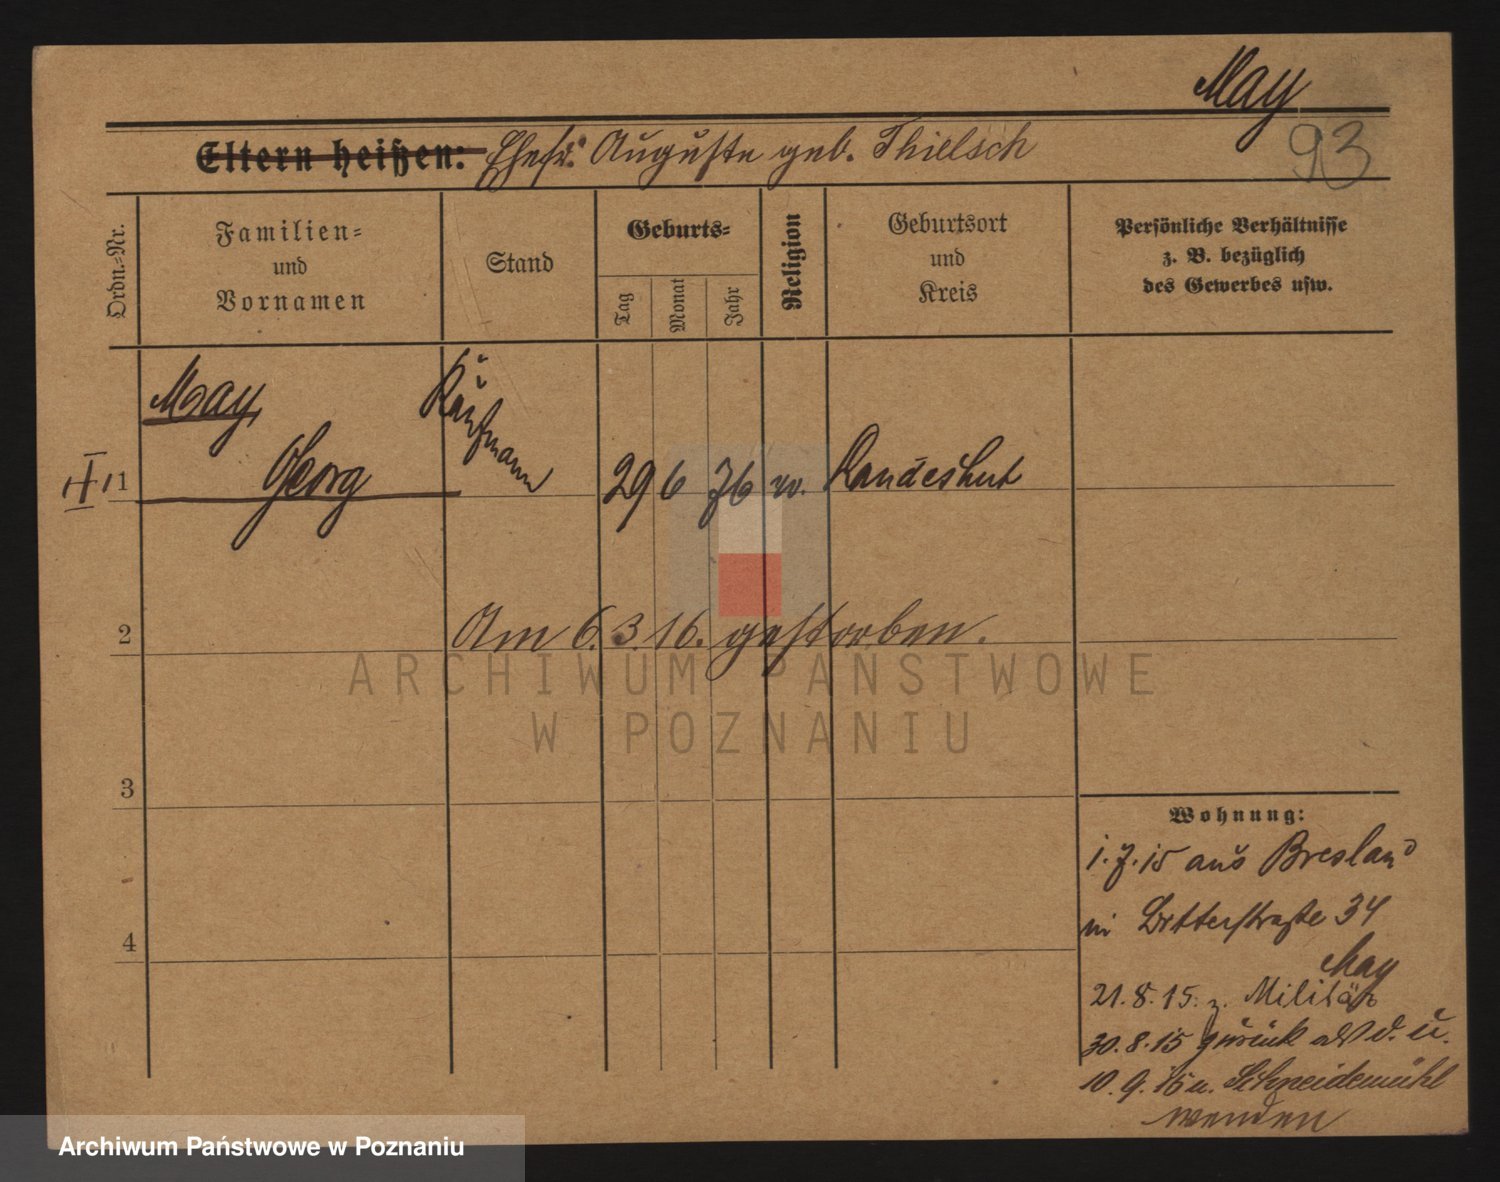 May
93
Eltern heißen: Ehefr: Auguste geb. Thielsch
Ordn.-Nr.
Familien-
und
Vornamen
Stand
Geburts-
Tag
Monat
Jahr
Religion
Geburtsort
und
Kreis
Persönliche Verhältnisse
z. B. bezüglich
des Gewerbes usw.
May
Kaufmann
1 Georg 29 6 76 Landeshut
2 Am 6. 3. 16. gestorben.
3
4
ARCHIWUM PAŃSTWOWE
W POZNANIU
Wohnung:
1.7.15 aus Breslau
in Ritterstraße 34
May
21.8.15. z. Militär
30.8.15 zurück als d. u.
10.9.15 n. Schneidemühl
wenden
Archiwum Państwowe w Poznaniu